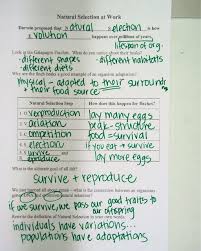 Natural Selection at Work
Darwin proposed that Natural Selection is how
evolution happens over millions of years.
lifespan of org.
Look at the Galapagos Finches. What do you notice about their beaks?
- different shapes - different habitats
- different sizes - different diets
Why are the finch beaks a good example of an organism adaptation?
physical - adapted to their surroundings
+ their food source
Natural Selection Step
How does this happen for finches?
1. Overproduction
lay many eggs
2. Variation
beak - structure
3. Competition
food = survival
4. Selection
if you eat → survive
5. Survive and reproduce
lay more eggs
What is the ultimate goal of all life?
survive + reproduce
if we survive, we pass our good traits to
our offspring
Rewrite the definition of Natural Selection in your own words.
individuals have variations...
populations have adaptations